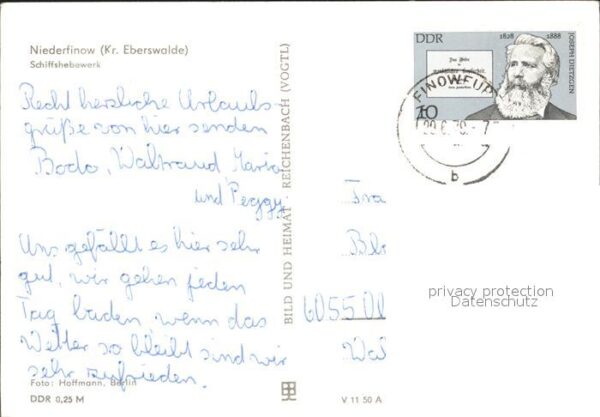 Niederfinow (Kr. Eberswalde)
Schiffshebewerk
Recht herzliche Urlaubs-
grüße von hier senden
Bodo, Waltraud, Maria
und Peggy
Uns gefällt es hier sehr
gut, wir gehen jeden
Tag baden, wenn das
Wetter so bleibt sind wir
sehr zufrieden.
Foto: Hoffmann, Berlin
DDR 0,25 M
BILD UND HEIMAT · REICHENBACH (VOGTL)
V 11 50 A
DDR 1828 1888
JOSEPH DIETZGEN
10
FINOWFUR
b
Fra
6055
privacy protection
Datenschutz